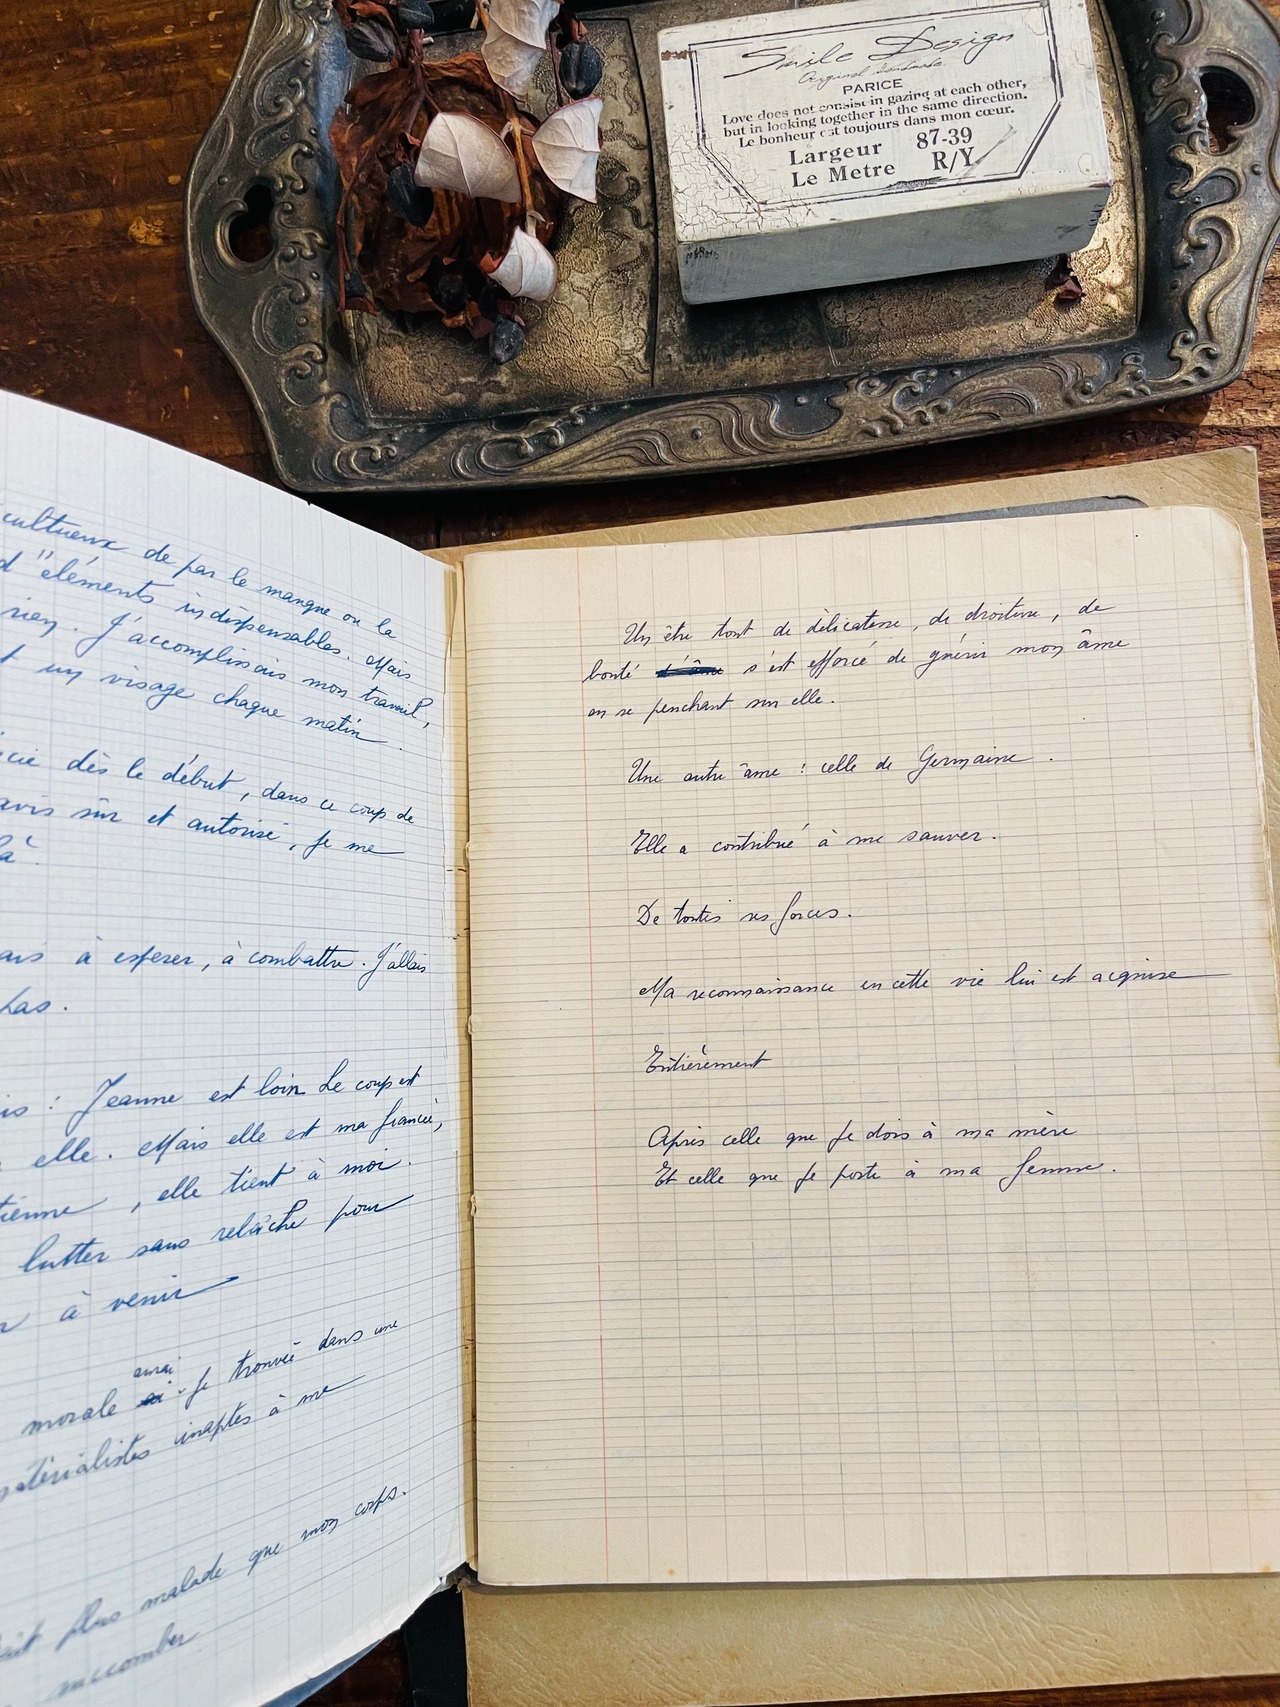 Smile Design
Original Handmade
PARICE
Love does not consist in gazing at each other,
but in looking together in the same direction.
Le bonheur est toujours dans mon cœur.
Largeur 87-39
Le Metre R/Y
cultueux de par le manque ou la
d'éléments indispensables. Mais
rien. J'accomplissais mon travail,
un visage chaque matin.
dès le début, dans ce coup de
avis sûr et autorisé, je me
là.
à espérer, à combattre. J'allais
pas.
: Jeanne est loin Le coup est
elle. Mais elle est ma fiancée,
, elle tient à moi.
lutter sans relâche pour
à venir
aurai
morale ai. Je trouvée dans une
matérialistes inaptes à me
plus malade que mon corps.
succomber
Un être tout de délicatesse, de droiture, de
bonté d'âme s'est efforcé de guérir mon âme
en se penchant sur elle.
Une autre âme : celle de Germaine.
Elle a contribué à me sauver.
De toutes ses forces.
Ma reconnaissance en cette vie lui est acquise
Entièrement
Après celle que je dois à ma mère
Et celle que je porte à ma femme.